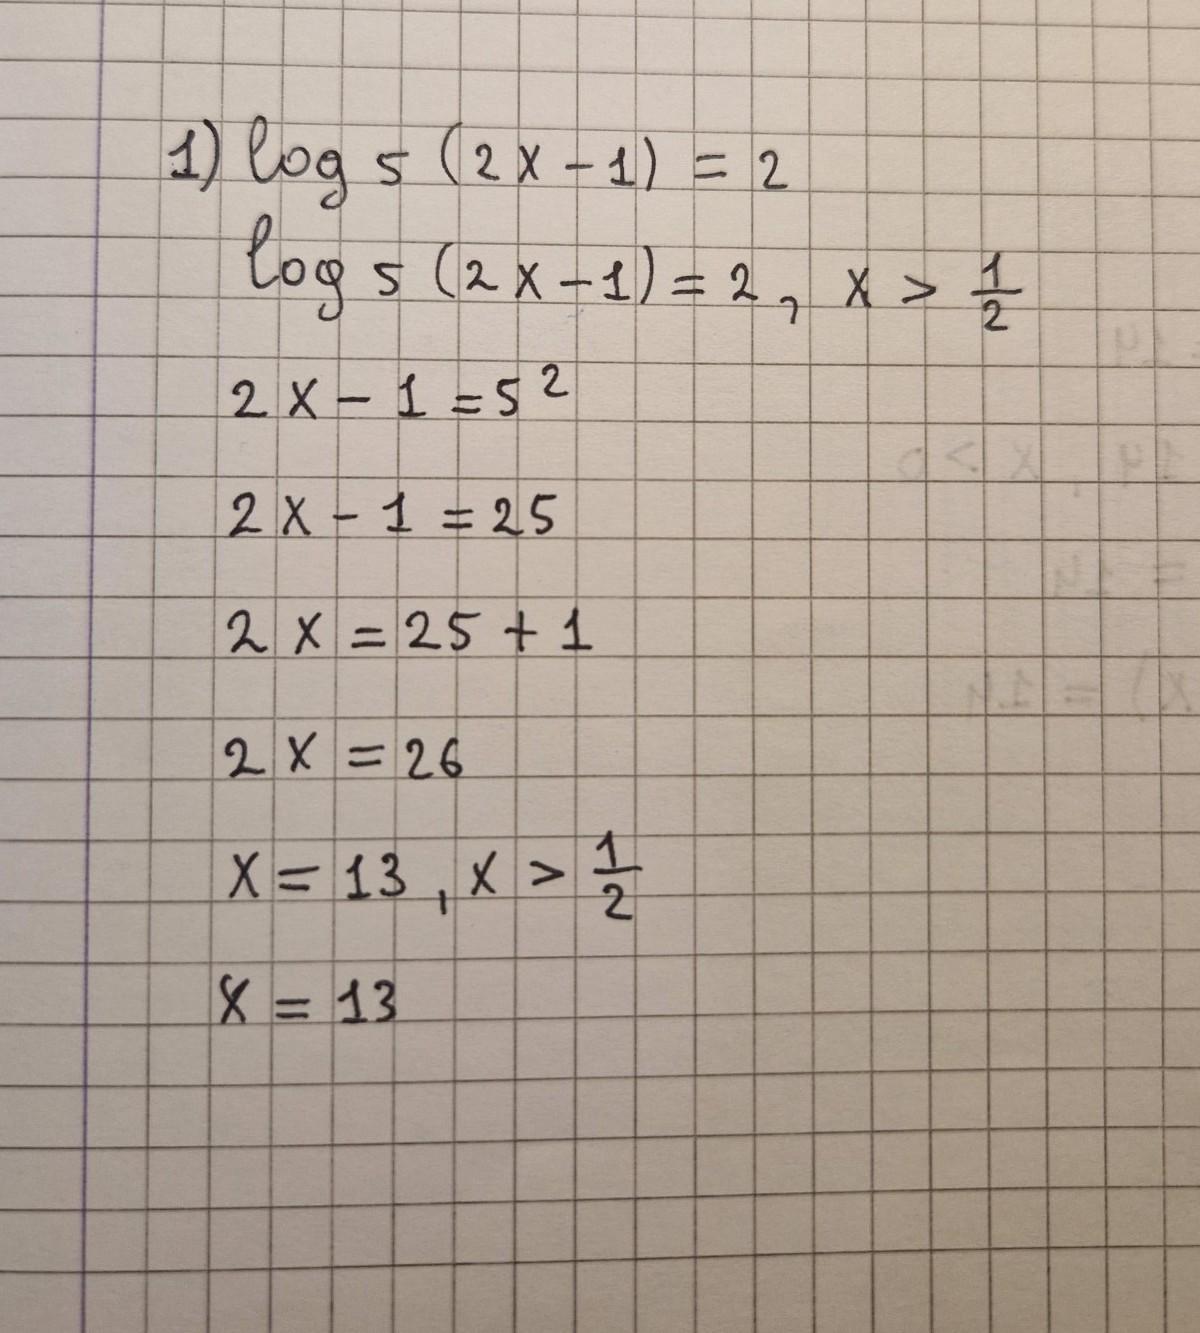 1) log 5 (2x - 1) = 2
log 5 (2x - 1) = 2, x > 1/2
2x - 1 = 5²
2x - 1 = 25
2x = 25 + 1
2x = 26
x = 13, x > 1/2
x = 13